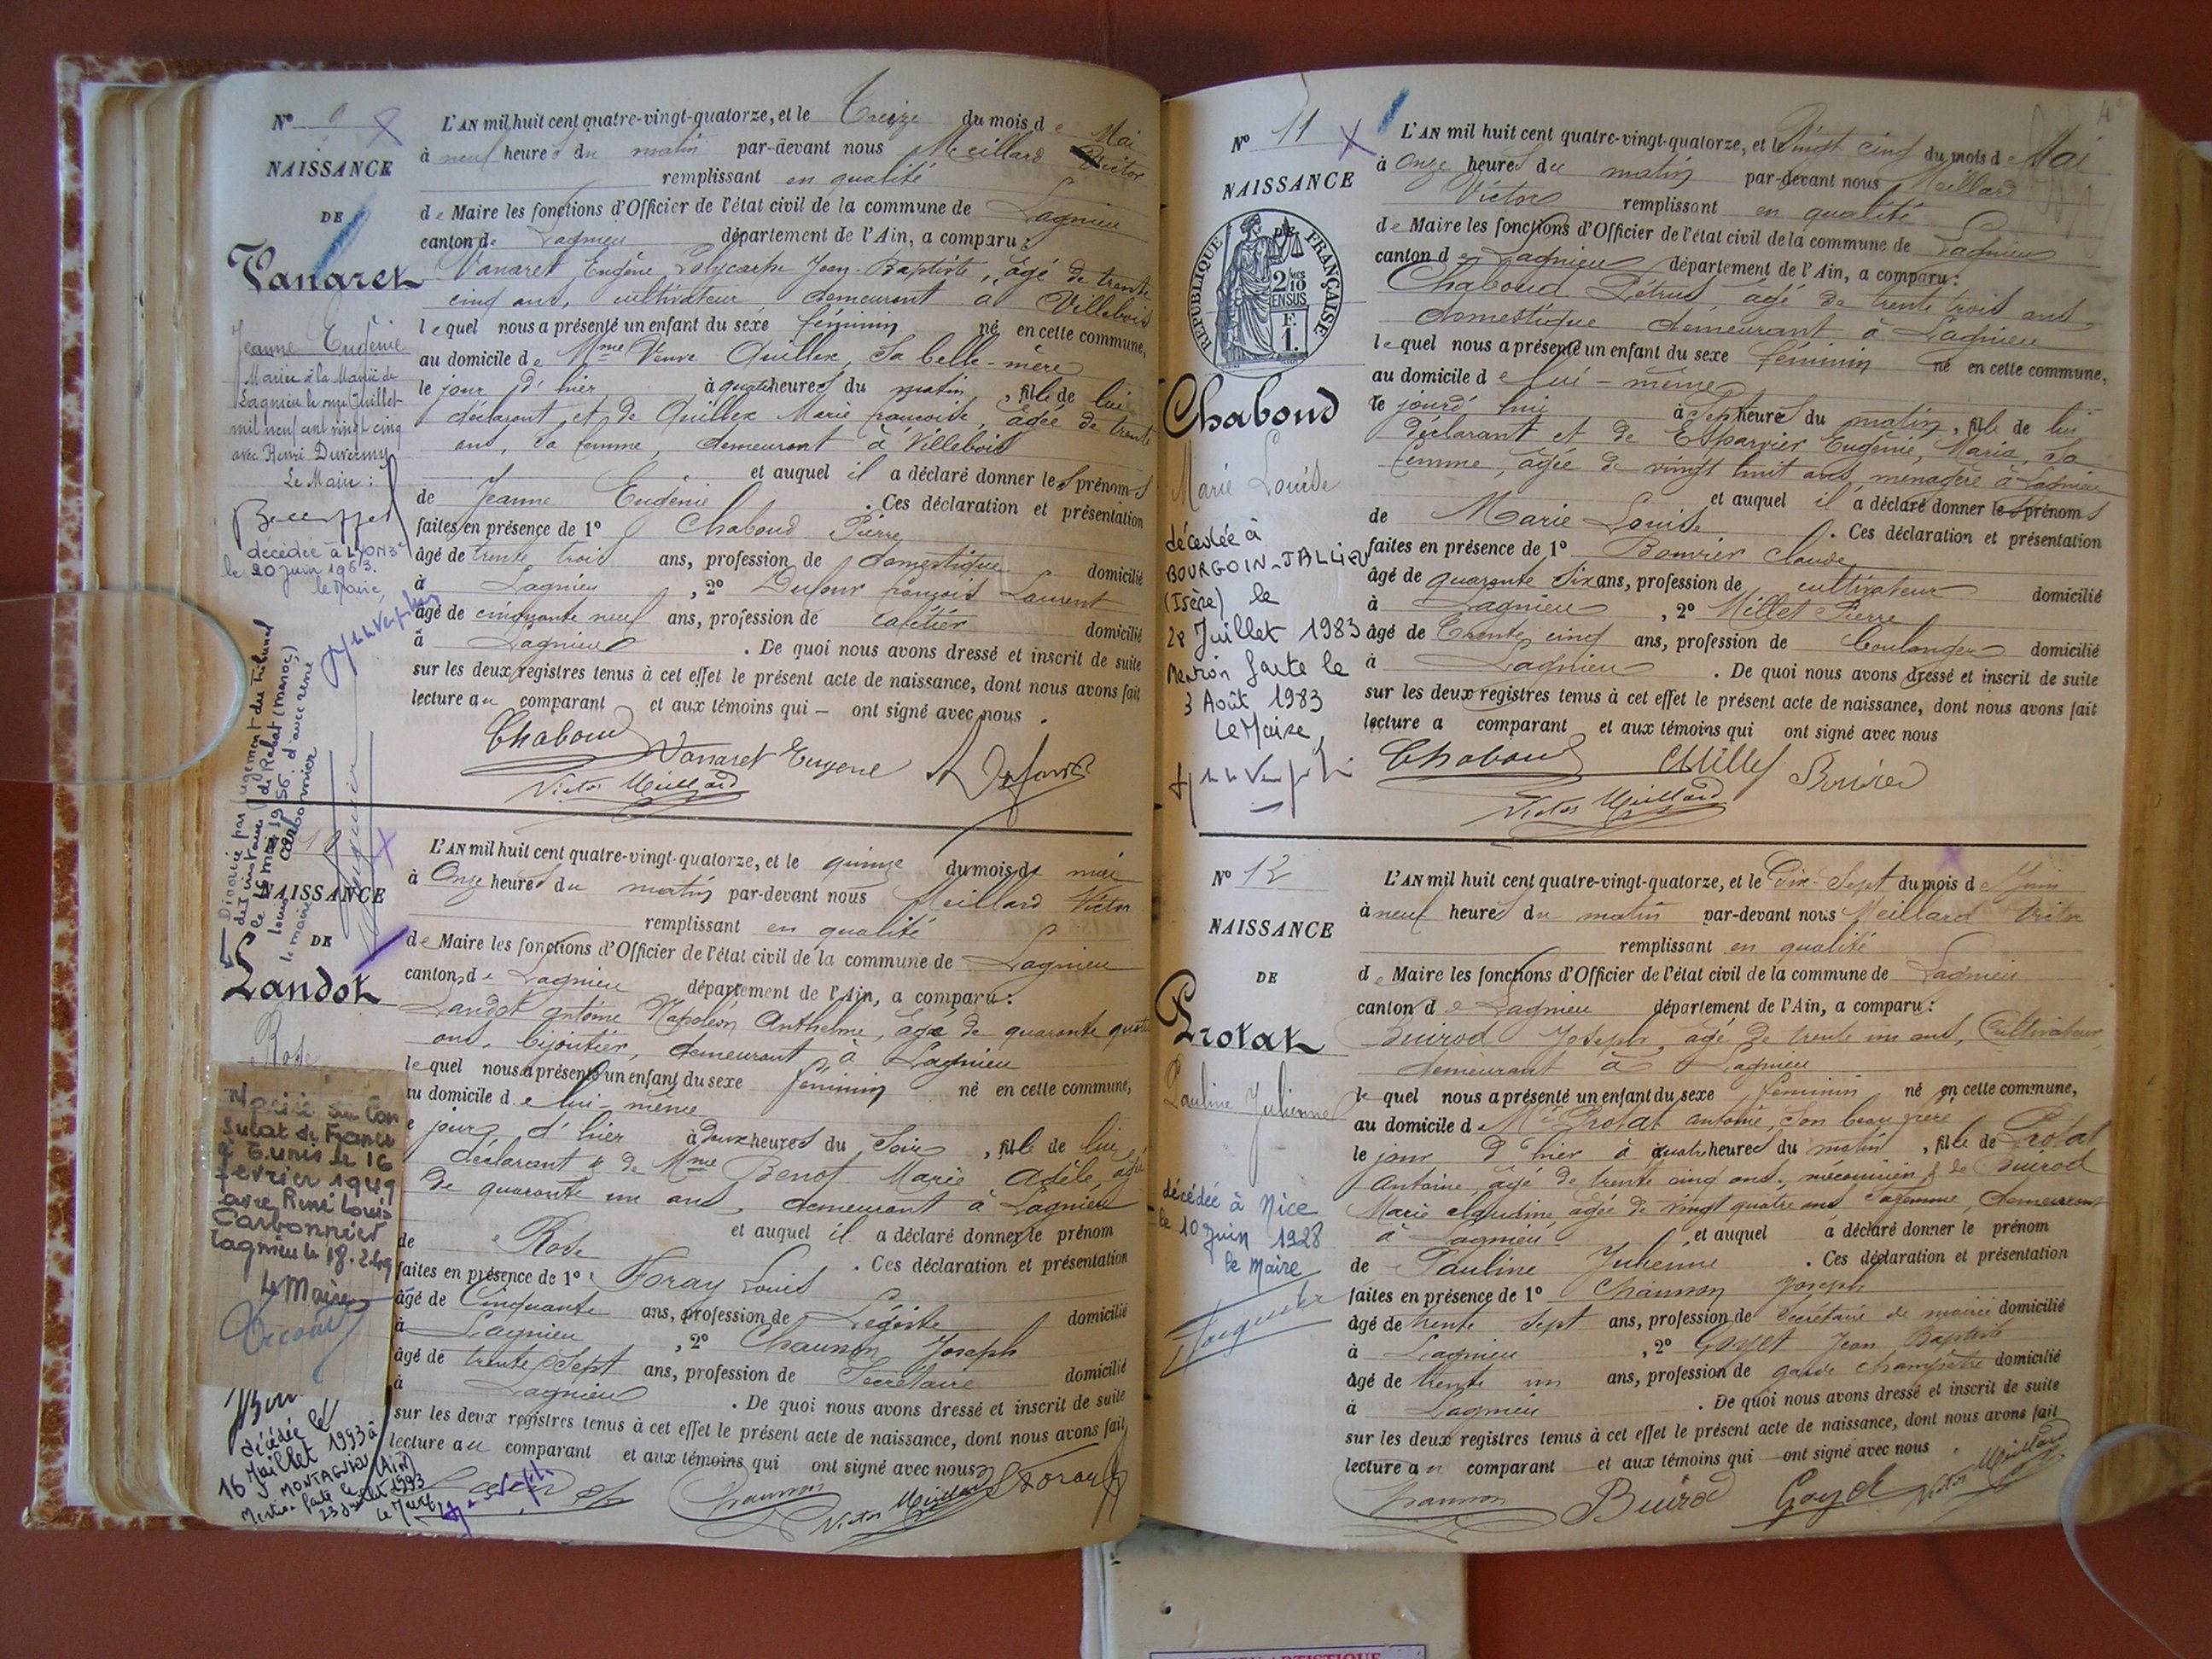 N° 9
NAISSANCE
DE
Vanaret
Jeanne Eugénie
Mariée à la Mairie de
Lagnieu le onze Juillet
mil neuf cent vingt cinq
avec Henri Duvernay
Le Maire :
décédée à LYON 3e
le 20 juin 1963.
le Maire,
L'AN mil huit cent quatre-vingt-quatorze, et le Treize du mois de Mai
à neuf heures du matin par-devant nous Meillard Victor
remplissant en qualité
de Maire les fonctions d'Officier de l'état civil de la commune de Lagnieu
canton de Lagnieu département de l'Ain, a comparu :
Vanaret Eugène Polycarpe Jean-Baptiste, âgé de trente
cinq ans, cultivateur demeurant à Villebois
lequel nous a présenté un enfant du sexe féminin né en cette commune,
au domicile de Mme Veuve Quillex, sa belle-mère
le jour d'hier à quatre heures du matin, fille de lui
déclarant et de Quillex Marie françoise, âgée de trente
ans, sa femme, demeurant à Villebois
et auquel il a déclaré donner les prénoms
de Jeanne Eugénie . Ces déclaration et présentation
faites en présence de 1° Chaboud Pierre
âgé de trente trois ans, profession de domestique domicilié
à Lagnieu , 2° Dufour françois Laurent
âgé de cinquante neuf ans, profession de cafetier domicilié
à Lagnieu . De quoi nous avons dressé et inscrit de suite
sur les deux registres tenus à cet effet le présent acte de naissance, dont nous avons fait
lecture au comparant et aux témoins qui — ont signé avec nous .
Chaboud Vanaret Eugene Dufour
Victor Meillard
Divorcée par jugement du Tribunal
de 1ère instance de Rabat (Maroc)
1956 d'avec René
Louis Carbonnier
le maire
NAISSANCE
DE
Landot
Rose
Mariée au Con
sulat de France
à Tunis le 16
février 1949
avec René Louis
Carbonnier
Lagnieu le 18.2.49
Le Maire
décédée le
16 Juillet 1993 à
MONTAGNIEU (Ain)
Mention faite le
23 juillet 1993
Le Maire
L'AN mil huit cent quatre-vingt-quatorze, et le quinze du mois de mai
à Onze heures du matin par-devant nous Meillard Victor
remplissant en qualité
de Maire les fonctions d'Officier de l'état civil de la commune de Lagnieu
canton de Lagnieu département de l'Ain, a comparu :
Landot Antoine Napoléon Anthelme, âgé de quarante quatre
ans, bijoutier, demeurant à Lagnieu
lequel nous a présenté un enfant du sexe féminin né en cette commune,
au domicile de lui-même
le jour d'hier à deux heures du soir, fille de lui
déclarant & de Mme Benot Marie Adèle, âgée
de quarante un ans, demeurant à Lagnieu
et auquel il a déclaré donner le prénom
de Rose . Ces déclaration et présentation
faites en présence de 1° Foray Louis
âgé de Cinquante ans, profession de Légiste domicilié
à Lagnieu , 2° Chaunon Joseph
âgé de trente Sept ans, profession de Secrétaire domicilié
à Lagnieu . De quoi nous avons dressé et inscrit de suite
sur les deux registres tenus à cet effet le présent acte de naissance, dont nous avons fait
lecture au comparant et aux témoins qui ont signé avec nous
Chaunon Victor Meillard Foray
N° 11
NAISSANCE
RÉPUBLIQUE FRANÇAISE
2/10 EN SUS
Chaboud
Marie Louise
décédée à
BOURGOIN-JALLIEU
(Isère) le
28 Juillet 1983
Mention faite le
3 Août 1983
Le Maire,
L'AN mil huit cent quatre-vingt-quatorze, et le Vingt cinq du mois de Mai
à Onze heures du matin par-devant nous Meillard
Victor remplissant en qualité
de Maire les fonctions d'Officier de l'état civil de la commune de Lagnieu
canton de Lagnieu département de l'Ain, a comparu :
Chaboud Pétrus âgé de trente trois ans
domestique demeurant à Lagnieu
lequel nous a présenté un enfant du sexe féminin né en cette commune,
au domicile de lui-même
le jourd'hui à Sept heures du matin, fille de lui
déclarant et de Esparvier Eugénie, Maria, sa
femme, âgée de vingt huit ans ménagère à Lagnieu
et auquel il a déclaré donner les prénoms
de Marie Louise . Ces déclaration et présentation
faites en présence de 1° Bouvier Claude
âgé de quarante six ans, profession de cultivateur domicilié
à Lagnieu , 2° Millet Pierre
âgé de Trente cinq ans, profession de boulanger domicilié
à Lagnieu . De quoi nous avons dressé et inscrit de suite
sur les deux registres tenus à cet effet le présent acte de naissance, dont nous avons fait
lecture a comparant et aux témoins qui ont signé avec nous
Chaboud Millet Bouvier
Victor Meillard
N° 12
NAISSANCE
DE
Protat
Pauline Julienne
décédée à Nice
le 10 Juin 1928
le Maire
L'AN mil huit cent quatre-vingt-quatorze, et le Dix-Sept du mois de Juin
à neuf heures du matin par-devant nous Meillard Victor
remplissant en qualité
de Maire les fonctions d'Officier de l'état civil de la commune de Lagnieu
canton de Lagnieu département de l'Ain, a comparu :
Buirod Joseph, âgé de trente un ans, Cultivateur
demeurant à Lagnieu
lequel nous a présenté un enfant du sexe féminin né en cette commune,
au domicile d Mr Protat antoine, son beau frère
le jour d'hier à quatre heures du matin, fille de Protat
Antoine, âgé de trente cinq ans, mécanicien & de Buirod
Marie claudine âgée de vingt quatre ans sa femme, demeurant
à Lagnieu et auquel a déclaré donner le prénom
de Pauline Julienne . Ces déclaration et présentation
faites en présence de 1° Chaunon Joseph
âgé de trente sept ans, profession de secrétaire de mairie domicilié
à Lagnieu , 2° Goyet Jean Baptiste
âgé de trente un ans, profession de garde champêtre domicilié
à Lagnieu . De quoi nous avons dressé et inscrit de suite
sur les deux registres tenus à cet effet le présent acte de naissance, dont nous avons fait
lecture au comparant et aux témoins qui — ont signé avec nous .
Chaunon Buirod Goyet Victor Meillard